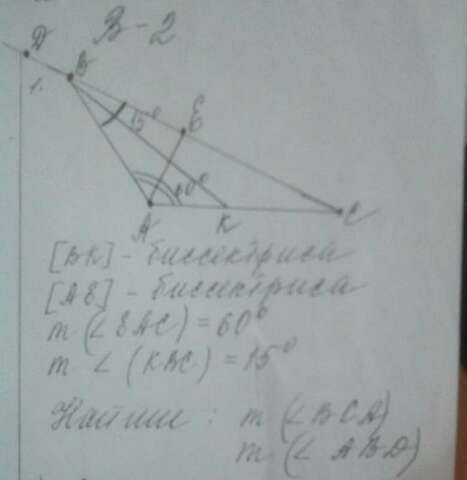 В-2
D
1.
B
15°
E
60°
A
K
C
[BK] - биссектриса
[AE] - биссектриса
m (∠EAC) = 60°
m ∠ (KBC) = 15°
Найти : m (∠BCA)
m (∠ ABD)